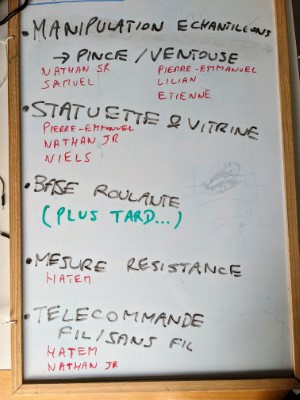 • MANIPULATION ECHANTILLONS
→ PINCE / VENTOUSE
NATHAN SR PIERRE-EMMANUEL
SAMUEL LILIAN
ETIENNE
• STATUETTE & VITRINE
PIERRE-EMMANUEL
NATHAN JR
NIELS
• BASE ROULANTE
(PLUS TARD...)
• MESURE RESISTANCE
HATEM
• TELECOMMANDE
FIL/SANS FIL
HATEM
NATHAN JR